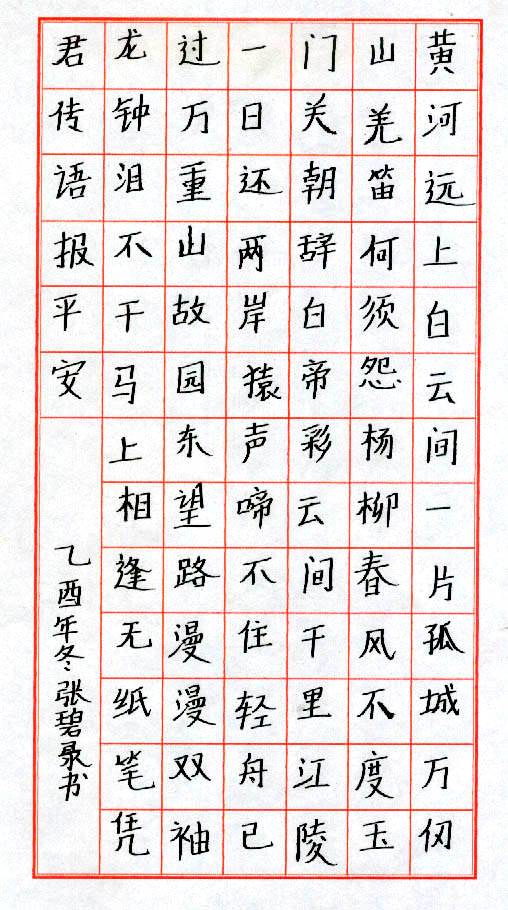 黄河远上白云间一片孤城万仞
山羌笛何须怨杨柳春风不度玉
门关朝辞白帝彩云间千里江陵
一日还两岸猿声啼不住轻舟已
过万重山故园东望路漫漫双袖
龙钟泪不干马上相逢无纸笔凭
君传语报平安
乙酉年冬张碧录书